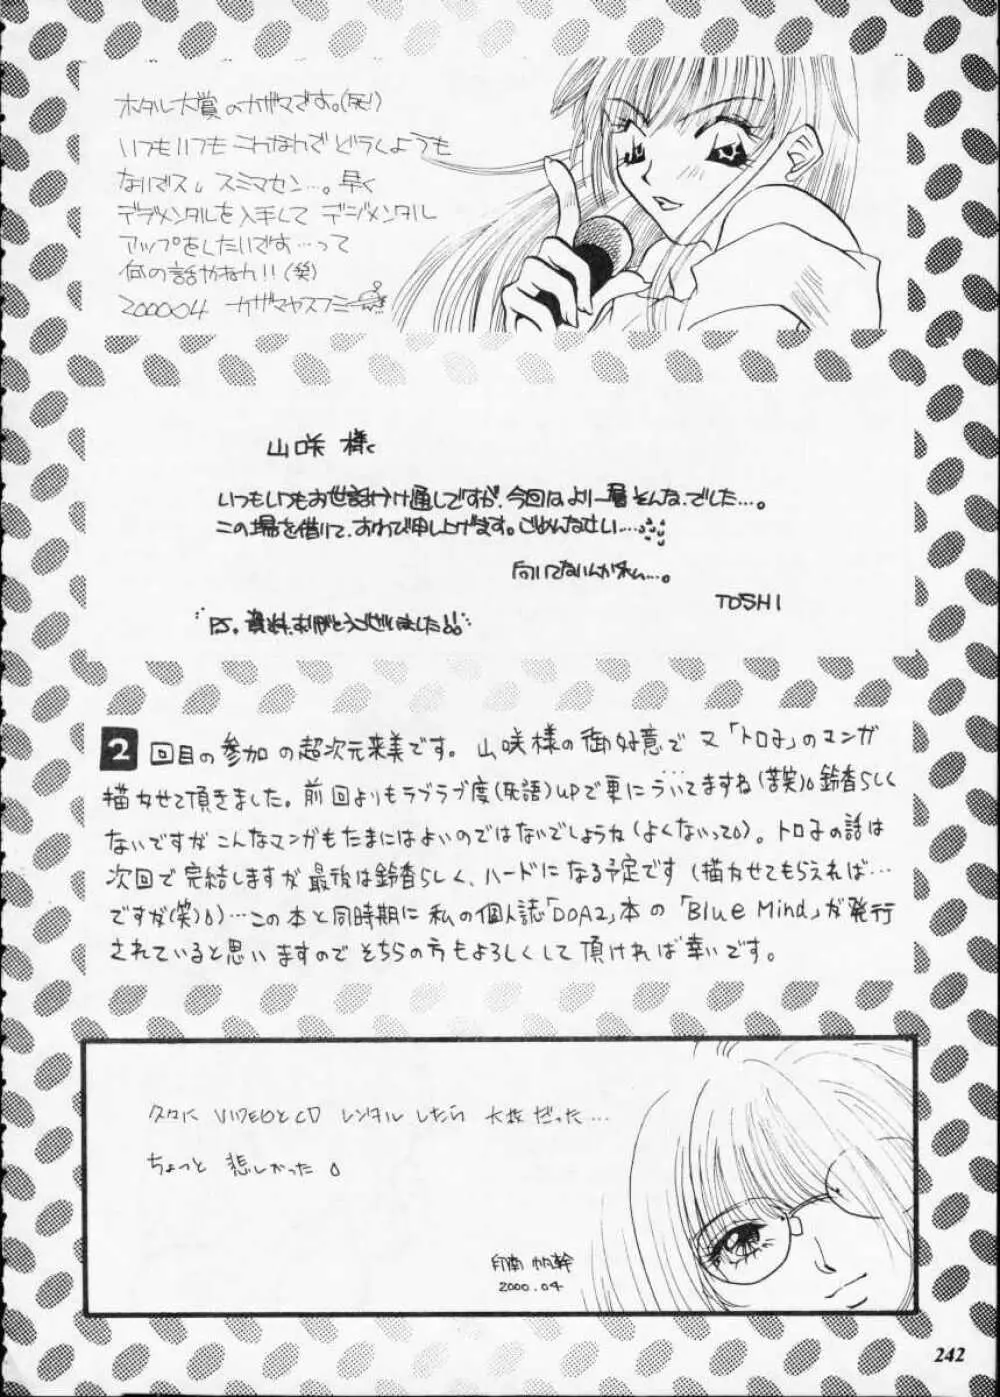 ホタル大賞のカザマです。(死!)
いつもいつもこんなんでどうしようも
ないデス。スミマセン…。早く
デヂメンタルを入手して デジメンタル
アップをしたいです…って
何の話やねん!!(笑)
200004 カザマヤスフミ
山咲 様
いつもいつもお世話かけ通しですが、今回はより一層そんな、でした…。
この場を借りて、おわび申し上げます。ごめんなさい…
向いてないんかなぁ…。
TOSHI
PS. 資料、ありがとうございました!!
2回目の参加の超次元来美です。山咲様の御好意で又「トロ子」のマンガ
描かせて頂きました。前回よりもラブラブ度(死語)UPで更にういてますね(苦笑)。鈴香らしく
ないですがこんなマンガもたまにはよいのではないでしょうね(よくないって)。トロ子の話は
次回で完結しますが最後は鈴香らしく、ハードになる予定です(描かせてもらえれば…
ですが(笑))…この本と同時期に私の個人誌「DOA2」本の「Blue Mind」が発行
されていると思いますのでそちらの方もよろしくして頂ければ幸いです。
久々に VIDEOとCD レンタルしたら 大枚だった…
ちょっと 悲しかった。
印南 帆幹
2000.04
242